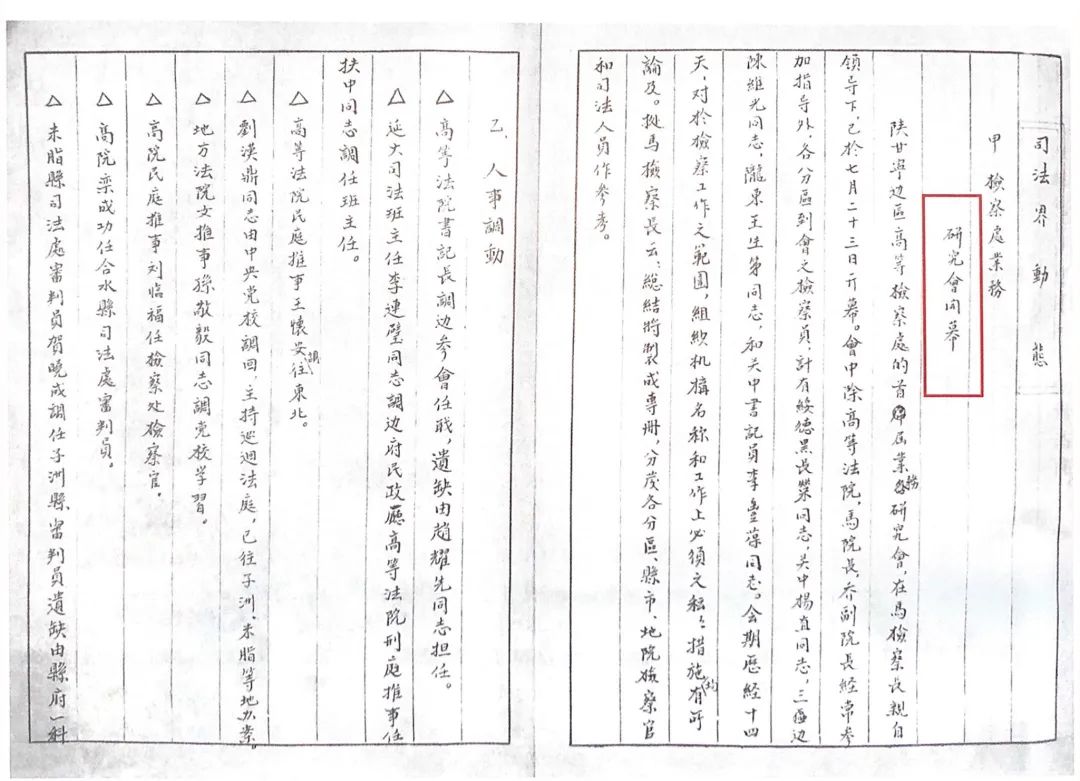 司法界動態
甲 檢察處業務
研究會開幕
陝甘寧边區高等檢察處的首屆業務研究會，在馬檢察長親自
領导下，已於七月二十三日開幕。會中除高等法院，馬院長，乔副院長經常參
加指导外，各分區到會之檢察員，計有綏德吳長榮同志，关中楊直同志，三边
陳維光同志，隴東王生第同志，和关中書記員李同志。会期歷經十四
天，对於檢察工作之範圍，組織机構名称和工作上必須之措施均有所
論及。据馬檢察長云：總結將製成專册，分發各分區縣市、地院檢察官
和司法人員作參考。
乙、人事調動
△ 高等法院書記長調边參會任職，遺缺由趙耀先同志担任。
△ 延大司法班主任李連璧同志調边府民政廳高等法院刑庭推事任
扶中同志調任班主任。
△ 高等法院民庭推事王懷安調往東北。
△ 劉漢鼎同志由中央党校調回，主持巡迴法庭，已往子洲、米脂等地办案。
△ 地方法院文推事孫敬毅同志調党校学習。
△ 高院民庭推事刘临福任檢察处檢察官。
△ 高院栾成功任合水縣司法處審判員。
△ 米脂縣司法處審判員賀曉成調任子洲縣審判員遺缺由縣府一科